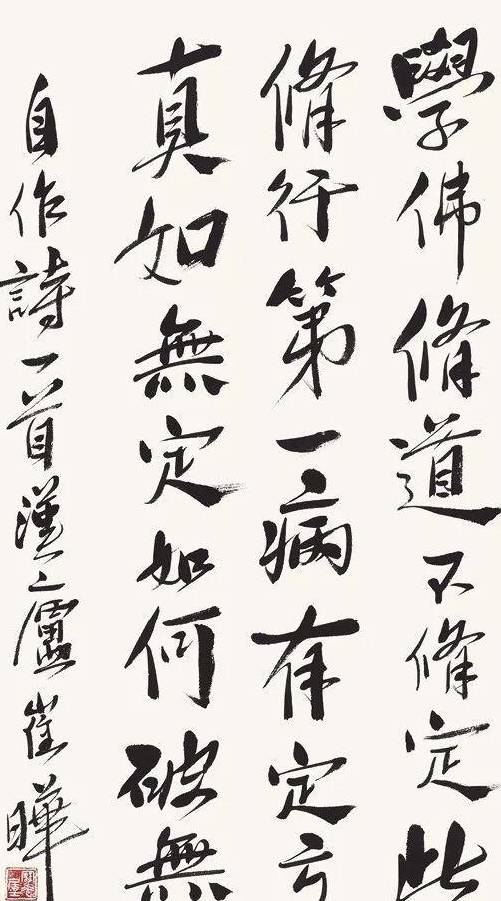 學佛脩道不脩定此
脩行第一病有定方
真如無定如何破無
自作詩一首漢廬崔曄